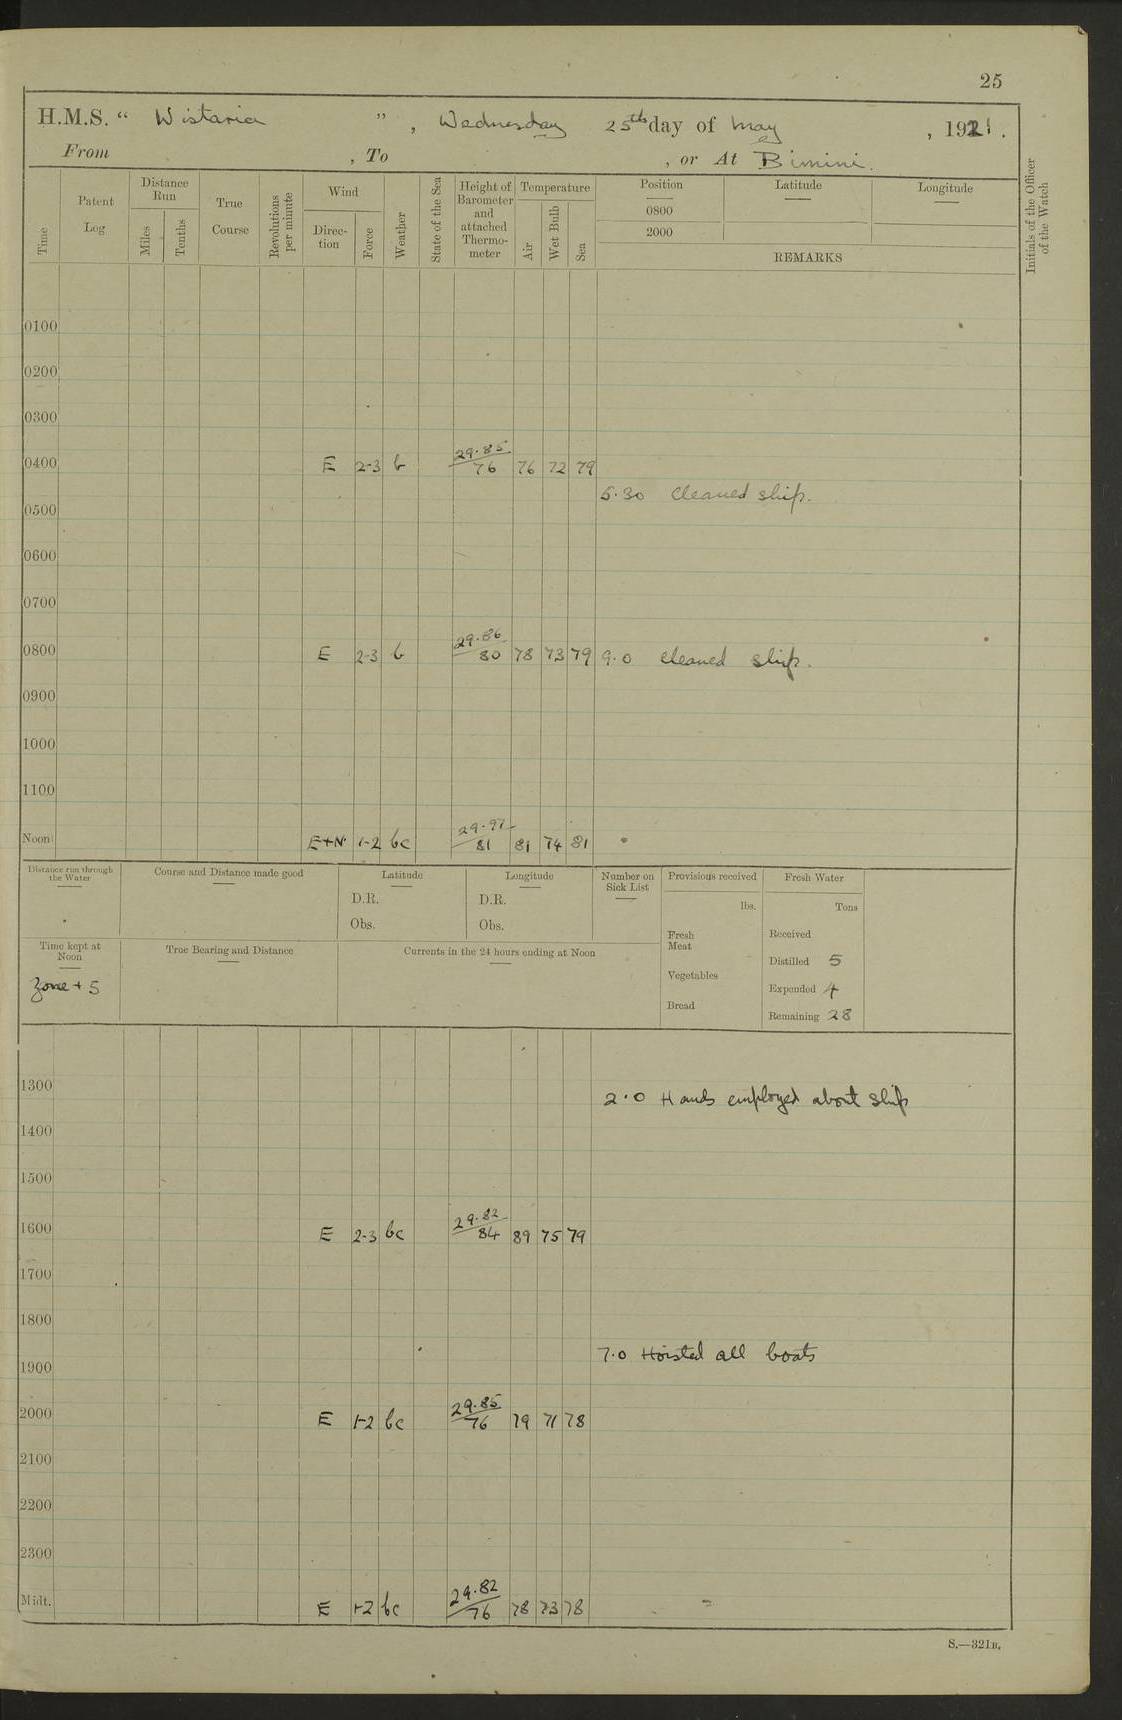 25
H.M.S. “ Wistaria ” , Wednesday 25th day of May , 1921.
From , To , or At Bimini.
Time
Patent Log
Distance Run
Miles
Tenths
True Course
Revolutions per minute
Wind
Direc-tion
Force
Weather
State of the Sea
Height of Barometer and attached Thermo-meter
Temperature
Air
Wet Bulb
Sea
Position
0800
2000
Latitude
Longitude
REMARKS
Initials of the Officer of the Watch
0100
0200
0300
0400 E 2-3 b 29.85/76 76 72 79
5.30 Cleaned ship.
0500
0600
0700
0800 E 2-3 b 29.86/80 78 73 79 9.0 Cleaned ship.
0900
1000
1100
Noon E+N 1-2 bc 29.97/81 81 74 81
Distance run through the Water
Course and Distance made good
Latitude
D.R.
Obs.
Longitude
D.R.
Obs.
Number on Sick List
Provisions received
lbs.
Fresh Meat
Vegetables
Bread
Fresh Water
Tons
Received
Distilled 5
Expended 4
Remaining 28
Time kept at Noon
Zone + 5
True Bearing and Distance
Currents in the 24 hours ending at Noon
1300
2.0 Hands employed about ship
1400
1500
1600 E 2-3 bc 29.82/84 89 75 79
1700
1800
7.0 Hoisted all boats
1900
2000 E 1-2 bc 29.85/76 79 71 78
2100
2200
2300
Midt. E 1-2 bc 29.82/76 78 73 78
S.—321B.